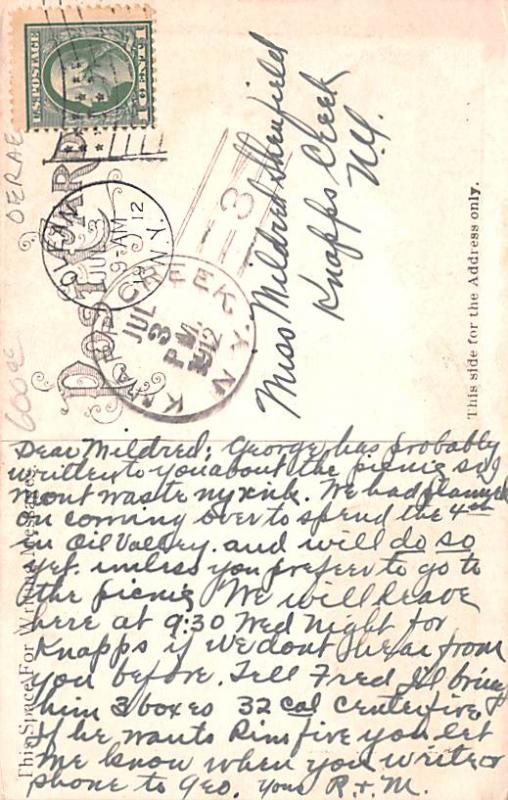 U.S. POSTAGE
1 CENT 1
POST CARD
OLEAN
JUL 3
9-AM
1912
N.Y.
KNAPPS CREEK
JUL
3
P.M.
1912
N.Y.
3
DERAE
Miss Mildred Shenfield
Knapps Creek
N.Y.
This side for the Address only.
This Space For Writing Messages
Dear Mildred; George has probably
written to you about the picnic so I
wont waste my ink. We had planned
on coming over to spend the 4th
in Oil Valley. and will do so
yet unless you prefer to go to
the picnic We will leave
here at 9:30 Wed Night for
Knapps if we dont hear from
you before. Tell Fred I'll bring
him 3 boxes 32 cal Centerfire
if he wants Rim five you let
me know when you write or
phone to Geo. Yours R + M.